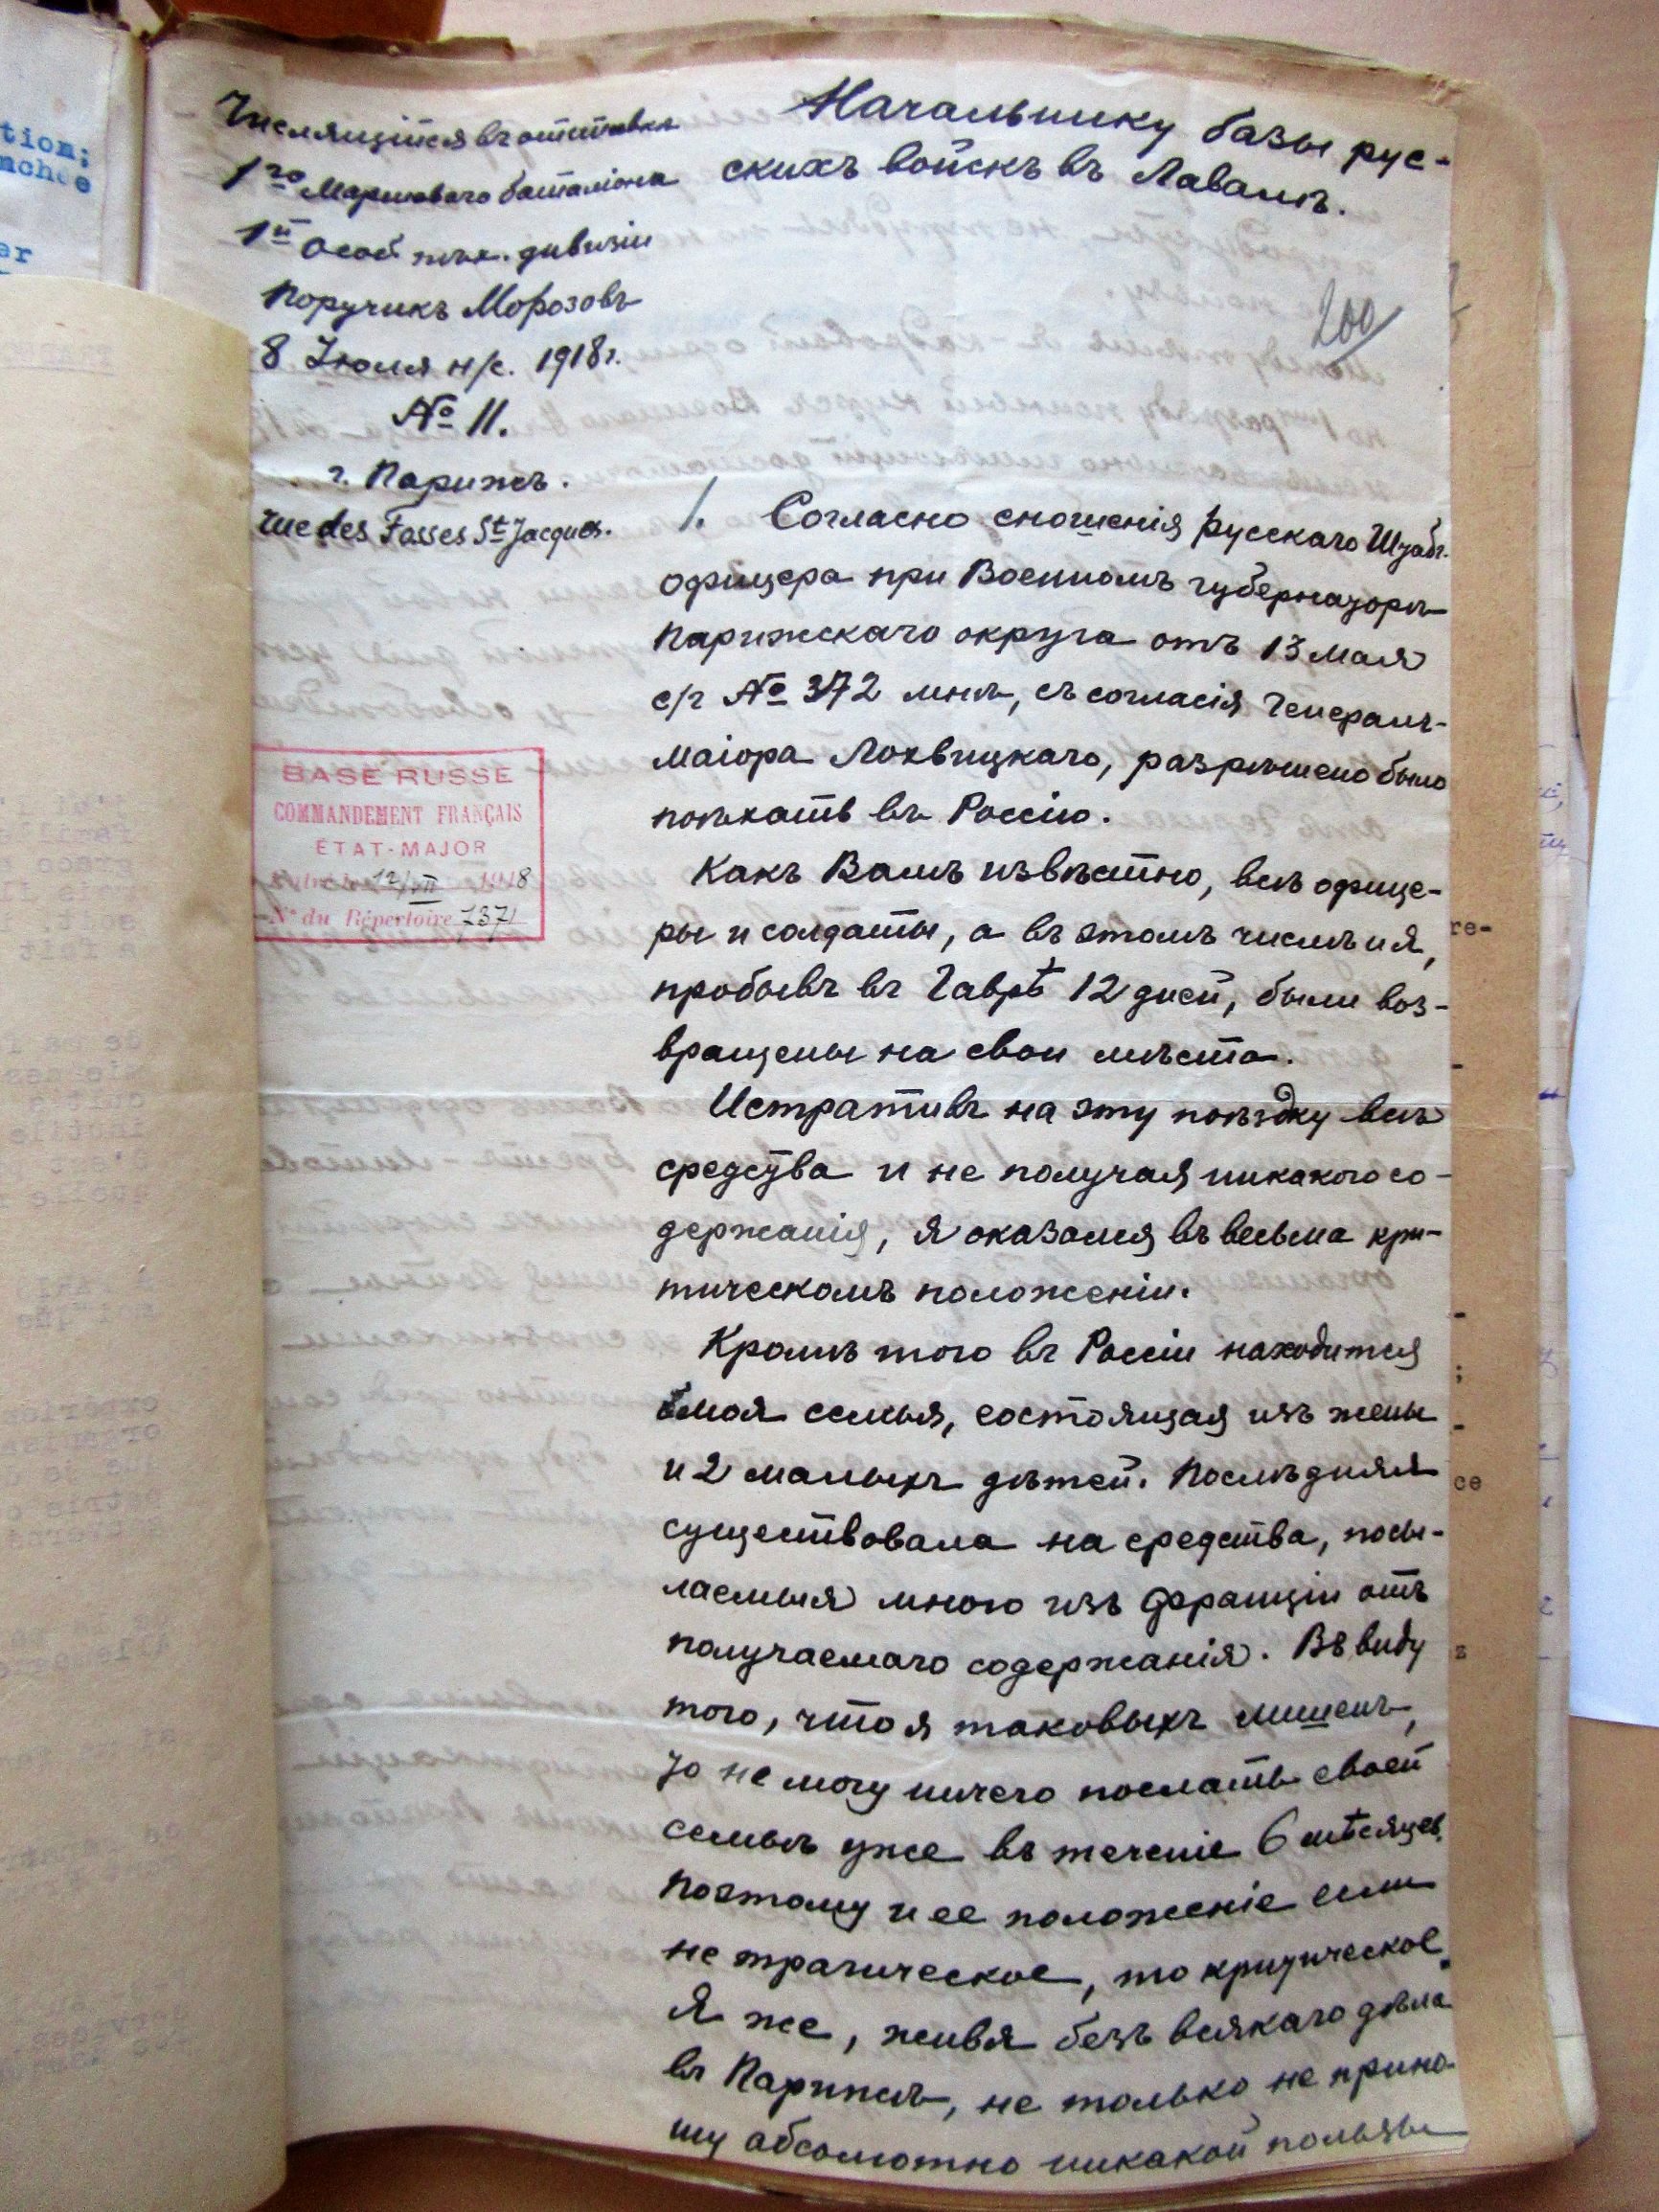 Числящійся въ отставкѣ
1го Маршеваго баталіона
1й Особ пѣх. дивизіи
Поручикъ Морозовъ
8 Іюля н/с. 1918 г.
№ 11.
г. Парижъ.
rue des Fosses St Jacques.
Начальнику базы рус-
скихъ войскъ въ Лавалѣ.
200
BASE RUSSE
COMMANDEMENT FRANÇAIS
ÉTAT-MAJOR
12/VII 1918
N° du Répertoire 7371
1. Согласно сношенія русскаго Штабъ-
офицера при Военномъ губернаторѣ
Парижскаго округа отъ 13 мая
с/г № 372 мнѣ, съ согласія Генералъ-
Маіора Лохвицкаго, разрѣшено было
поѣхать въ Россію.
Какъ Вамъ извѣстно, всѣ офице-
ры и солдаты, а въ этомъ числѣ и я,
пробывъ въ Гаврѣ 12 дней, были воз-
вращены на свои мѣста.
Истративъ на эту поѣздку всѣ
средства и не получая никакого со-
держанія, я оказался въ весьма кри-
тическомъ положеніи.
Кромѣ того въ Россіи находится
моя семья, состоящая изъ жены
и 2 малыхъ дѣтей. Послѣдняя
существовала на средства, посы-
лаемыя мною изъ Франціи отъ
получаемаго содержанія. Въ виду
того, что я таковыхъ лишенъ,
то не могу ничего послать своей
семьѣ уже въ теченіе 6 мѣсяцев.
Поэтому и ее положеніе если
не трагическое, то критическое.
Я же, живя безъ всякаго дѣла
въ Парижѣ, не только не прино-
шу абсолютно никакой пользы